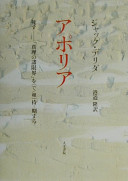 ジャック・デリダ
アポリア
死す――
「真理の諸限界」を[で/相]待-期する
港道 隆 訳
人文書院